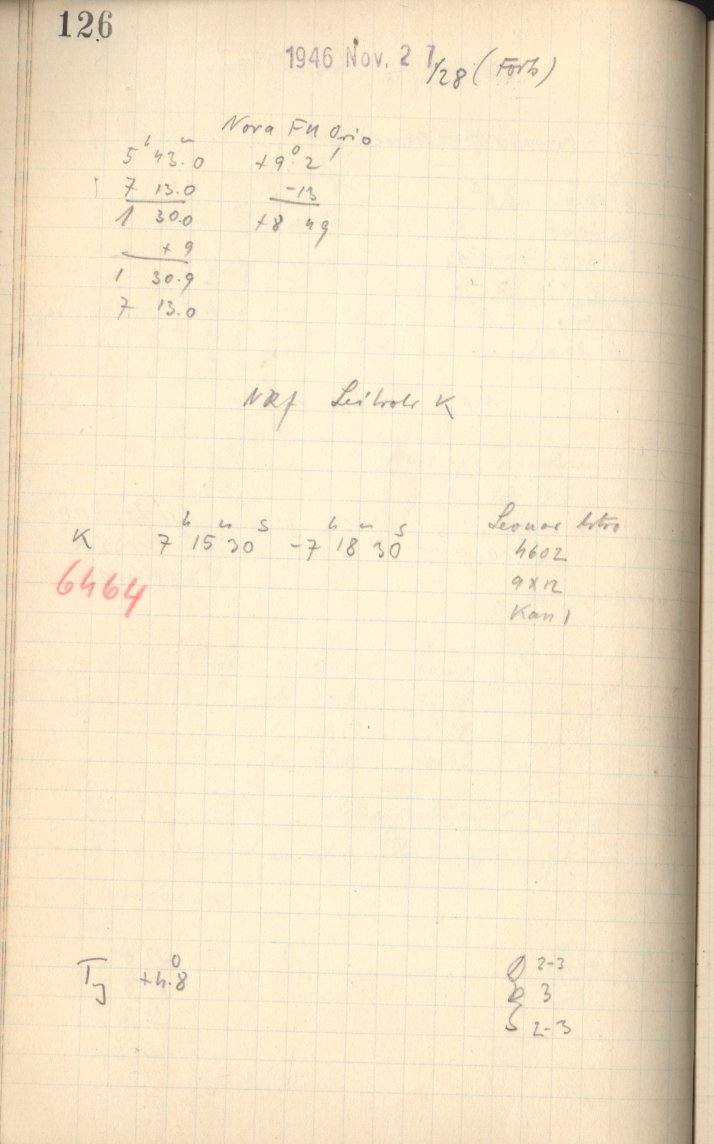 126
1946 Nov. 27/28 (Forts)
Nova FU Orio
5 h 43.0 m +9° 2'
7 13.0 -13
1 30.0 +8 49
+9
1 30.9
7 13.0
NRf K
K 7 h 15 m 30 s -7 h 18 m 30 s
6464
4602
9x12
Kan 1
T +4.8°
2-3
3
S 2-3